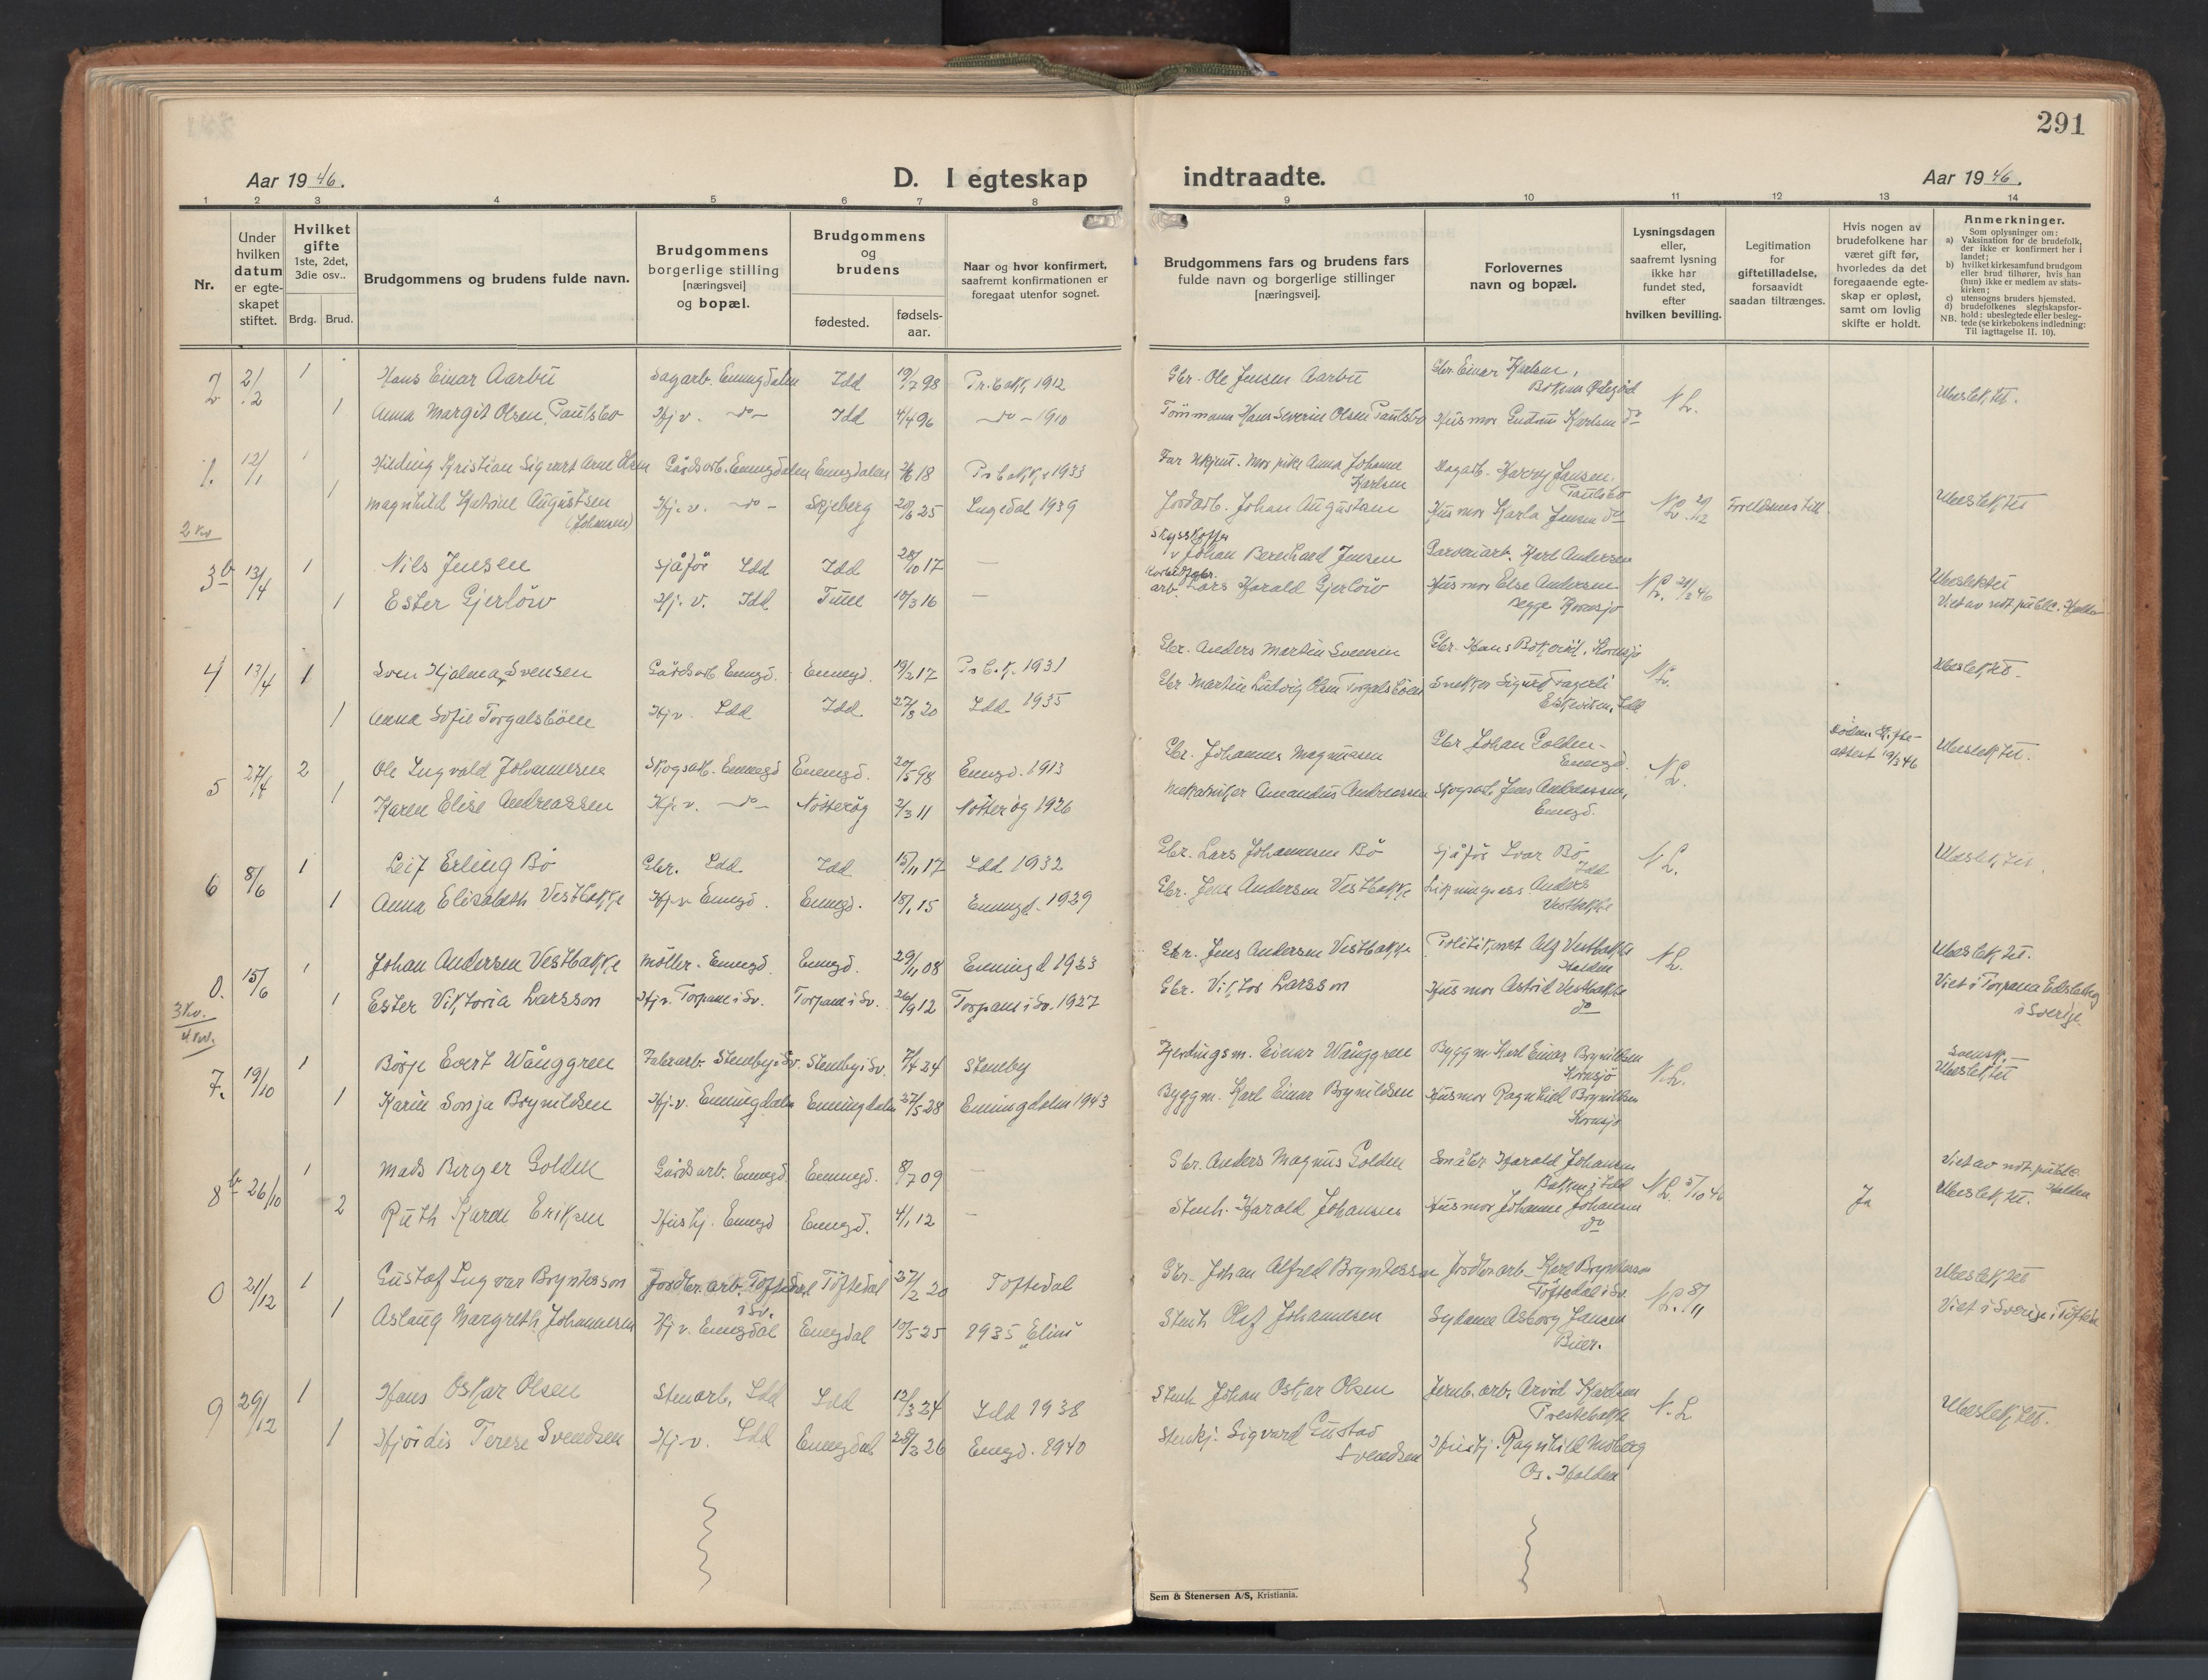 291
Aar 1946.
D. I egteskap
indtraadte.
Aar 1946.
1 2 3 4 5 6 7 8 9 10 11 12 13 14
Nr.
Under hvilken datum er egte-skapet stiftet.
Hvilket gifte 1ste, 2det, 3die osv..
Brdg. Brud.
Brudgommens og brudens fulde navn.
Brudgommens borgerlige stilling [næringsvei] og bopæl.
Brudgommens og brudens
fødested.
fødsels-aar.
Naar og hvor konfirmert, saafremt konfirmationen er foregaat utenfor sognet.
Brudgommens fars og brudens fars fulde navn og borgerlige stillinger [næringsvei].
Forlovernes navn og bopæl.
Lysningsdagen eller, saafremt lysning ikke har fundet sted, efter hvilken bevilling.
Legitimation for giftetilladelse, forsaavidt saadan tiltrænges.
Hvis nogen av brudefolkene har været gift før, hvorledes da det foregaaende egte-skap er opløst, samt om lovlig skifte er holdt.
Anmerkninger.
Som oplysninger om:
a) Vaksination for de brudefolk, der ikke er konfirmert her i landet;
b) hvilket kirkesamfund brudgom eller brud tilhører, hvis han (hun) ikke er medlem av stats-kirken;
c) utensogns bruders hjemsted.
d) brudefolkenes slegtskapsfor-hold: ubeslegtede eller besleg-tede (se kirkebokens indledning: Til iagttagelse II. 10).
NB.
2 2/2 1 Hans Einar Aarbu Sagarb. Enningdalen Idd 19/7 98 Pr.bakk. 1912 Gbr. Ole Jensen Aarbu Gbr. Einar Karlsen, N L. Ubeslektet.
1 Anna Margit Olsen Paulsbo Hj v. -do- Idd 4/4 96 -do- 1910 Tømmermann Hans Severin Olsen Paulsbo Husmor Gudrun Karlsen do
1. 12/1 1 Hilding Kristian Sigvart Arne Olsen Gårdsarb. Enningdalen Enngdalen 18 Pr bakk. 1933 Far ukjent. Mor pike Anna Johanne Karlsen Harry Jansen, Paulsbo
1 Magnhild Katrine Augustsen (Johansen) Hj. v. -do- Skjeberg 20/6 25 Ingedal 1939 Jordarb. Johan Augustsen Husmor Karla Jensen do N L. 29/12 Foreldrenes till. Ubeslektet
2 kv
3 b 13/4 1 Nils Jensen Sjåfør Idd Idd 28/10 17 — Johan Bernhard Jensen Garveriarb. Karl Andersen
1 Ester Gjerløw Hj. v. Idd Tune 10/3 16 — arb. Lars Harald Gjerløw Husmor Else Andersen begge Kornsjø N L. 21/2 46 Ubeslektet Viet av not publ. Halden
4 13/4 1 Sven Hjalmar Svensen Gårdsarb Enngd. Enningd. 19/2 17 Pr b.k. 1931 Gbr. Anders Martin Svensen Gbr. Hans Bokerød, Kornsjø N L. Ubeslektet.
1 Anna Sofie Torgalsbøen Hj v. Idd Idd 27/8 20 Idd 1935 Gbr Martin Ludvig Olsen Torgalsbøen Snekker Sigurd Fagerli Eskeviken, Idd
5 27/4 2 Ole Ingvald Johannesen Skogsarb. Enningd Enningd. 20/5 98 Enngd. 1913 Gbr. Johannes Magnussen Gbr Johan Golden- Enningd. N L. Døden Skifte-attest 19/3 46 Ubeslektet.
1 Karen Elise Andreassen Hj. v. -do- Nøtterøy 2/3 11 Nøtterøy 1926 Mekaniker Amandus Andreassen Skogsarb. Jens Andreassen, Enngd.
6 8/6 1 Leif Erling Bø Gbr. Idd Idd 15/11 17 Idd 1932 Gbr. Lars Johannesen Bø Sjåfør Ivar Bø Idd N L. Ubeslektet
1 Anna Elisabeth Vestbakke Hj. v Enngd. Enngd. 18/1 15 Enningd. 1929 Gbr. Jens Andersen Vestbakke Likningsass Anders Vestbakke
0. 15/6 1 Johan Andersen Vestbakke Møller. Enngd. Enngd. 29/1 08 Enningd 1923 Gbr. Jens Andersen Vestbakke Politikonst Alf Vestbakke Halden N L. Ubeslektet.
1 Ester Viktoria Larsson Hj v. Torpane i Sv. Torpane i Sv. 26/9 12 Torpane i Sv. 1927 Gbr. Viktor Larsson Husmor Astrid Vestbakke do Viet i Torpane Edsleskog i Sverige
3 kv.
4 kv.
7. 19/10 1 Börje Evert Wånggren Fabr.arb. Steneby i Sv. Steneby i Sv. 7/4 24 Steneby Fjerdingsm. Einar Wånggren Byggm Karl Einar Brynildsen Kornsjø N. L. Svensk. Ubeslektet
1 Karin Sonja Brynildsen Hj. v. Enningdalen Enningdalen 27/5 28 Enningdalen 1943 Byggm. Karl Einar Brynildsen Husmor Ragnhild Brynildsen Kornsjø
8 b 26/10 1 Mads Birger Golden Gårdsarb. Enngd. Enningd. 8/7 09 — Gbr. Anders Magnus Golden Småbr Harald Johansen Bakken i Idd N L. 5/10 46 Viet av not publ. Halden
2 Ruth Karen Eriksen Hushj. Enngd Enngd. 4/1 12 — Stenh. Harald Johansen Husmor Johanne Johansen do Ja Ubeslektet.
0 21/12 1 Gustaf Ingvar Bryntesson Jordbr. arb. Töftedal i Sv. Töftedal 27/2 20 Töftedal Gbr. Johan Alfred Bryntesson Jordbr arb. Karl Bryntesson Töftedal i Sv. N L. 8/11 Ubeslektet
1 Aslaug Margreth Johannesen Hj v. Enngdal Enngdal 10/5 25 1935 "Elim" Stenh Olaf Johannesen Sydame Asborg Jansen Bier. Viet i Sverige i Töftedal
9 29/12 1 Hans Oskar Olsen Stenarb. Idd Idd 12/3 24 Idd 1938 Stenh Johan Oskar Olsen Jernb. arb. Arvid Karlsen Prestebakke N. L Ubeslektet.
1 Hjørdis Terese Svendsen Hj. v. Idd Enngdal 28/3 26 Enngd. 1940 Stenhj. Sigvard Gustav Svendsen Hushj. Ragnhild Moberg Os. Halden
Sem & Stenersen A/S, Kristiania.